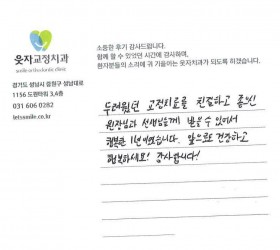 웃자교정치과
smile orthodontic clinic
경기도 성남시 중원구 성남대로
1156 도원타워 3,4층
031 606 0282
letssmile.co.kr
소중한 후기 감사드립니다.
함께 할 수 있었던 시간에 감사하며,
환자분들의 소리에 귀 기울이는 웃자치과가 되도록 하겠습니다.
두려웠던 교정치료를 친절하고 좋으신
원장님과 선생님들께 받을 수 있어서
행복한 1년이었습니다. 앞으로도 건강하고
행복하세요! 감사합니다!